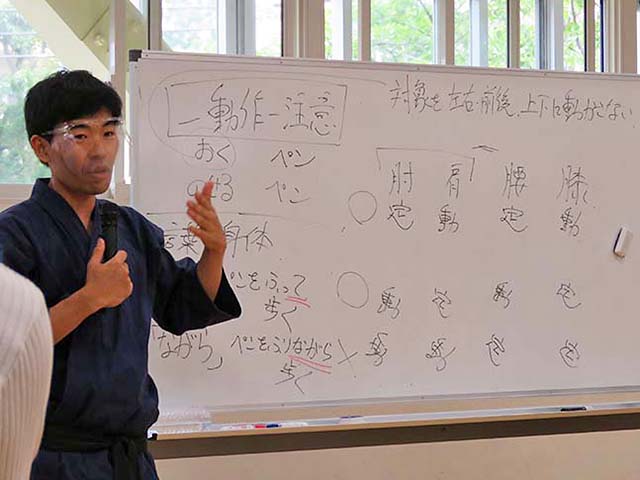 一動作一注意
対象を左右前後、上下に動かさない
おく ペン
のせる ペン
言葉 身体
ペンをふって
歩く
「ながら」 ペンをふりながら ×
歩く
肘 肩 腰 膝
○ 定 動 定 動
○ 動 定 動 定
動 動 定 定